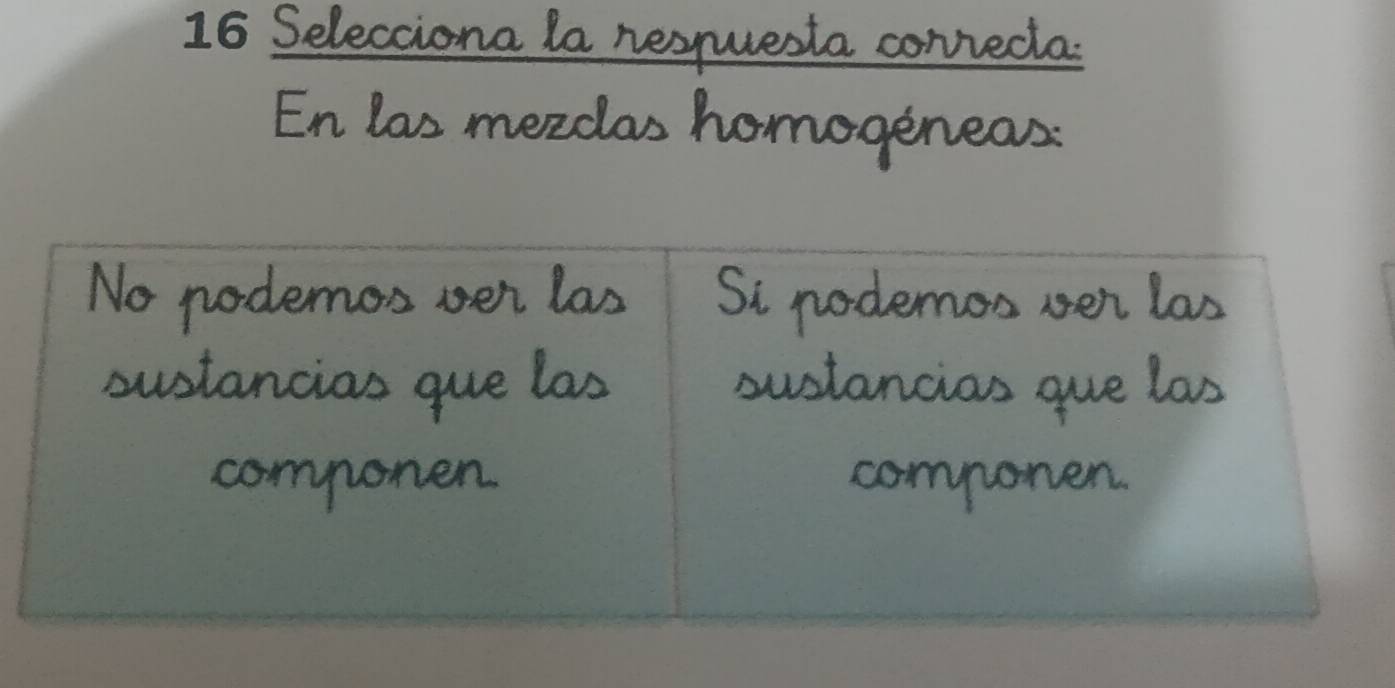 16 Selecciona la respuesta correcta:
En las mezclas homogéneas:
No podemos ver las
sustancias que las
componen.
Si podemos ver las
sustancias que las
componen.